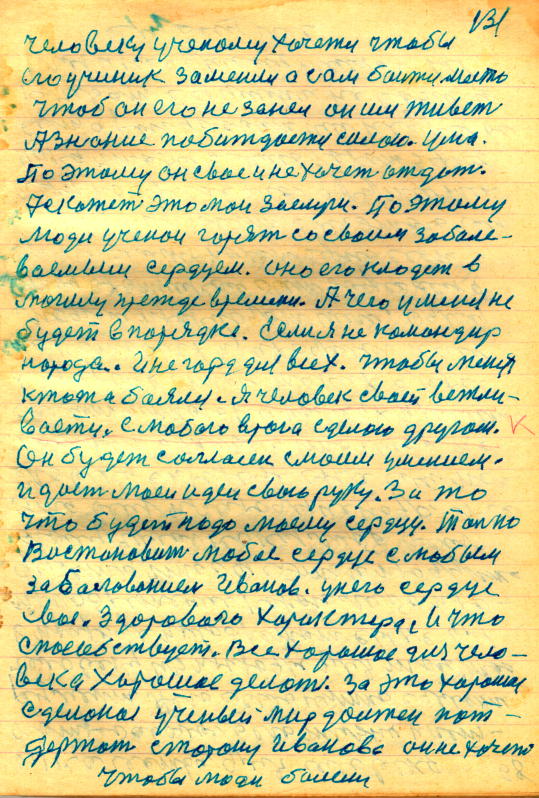 131
человеку ученому хочети чтобы
его ученик заменил а сам боити место
чтоб он его не занел он им живет
А знание побиждоети силою. ума.
Поэтому он свое и не хочет отдат.
А скожет это мои заслуги. Поэтому
люди ученои горят со своим забале-
ваемыим сердцем. оно его клодет в
могилу прежде времени. А чего у меня не
будет в порядке. Если я не командир
народа. И не горд для всех. чтобы меня
ктото а боялся. я человек своей вежли-
вости. с любого врога сделою другом.
Он будет согласен с моим умением.
и доет моеи идеи свою руку. За то
что будет подо моему сердцу. Толко
востоновит любое сердце с любым
заболованием Иванов. у него сердце
свое. Здорового характера. И что
способствует. Все хорошое для чело-
века хорошое делот. За это хорошее
сделоное ученый мир должен под-
держат сторону Иванова он не хочети
чтобы люди болели